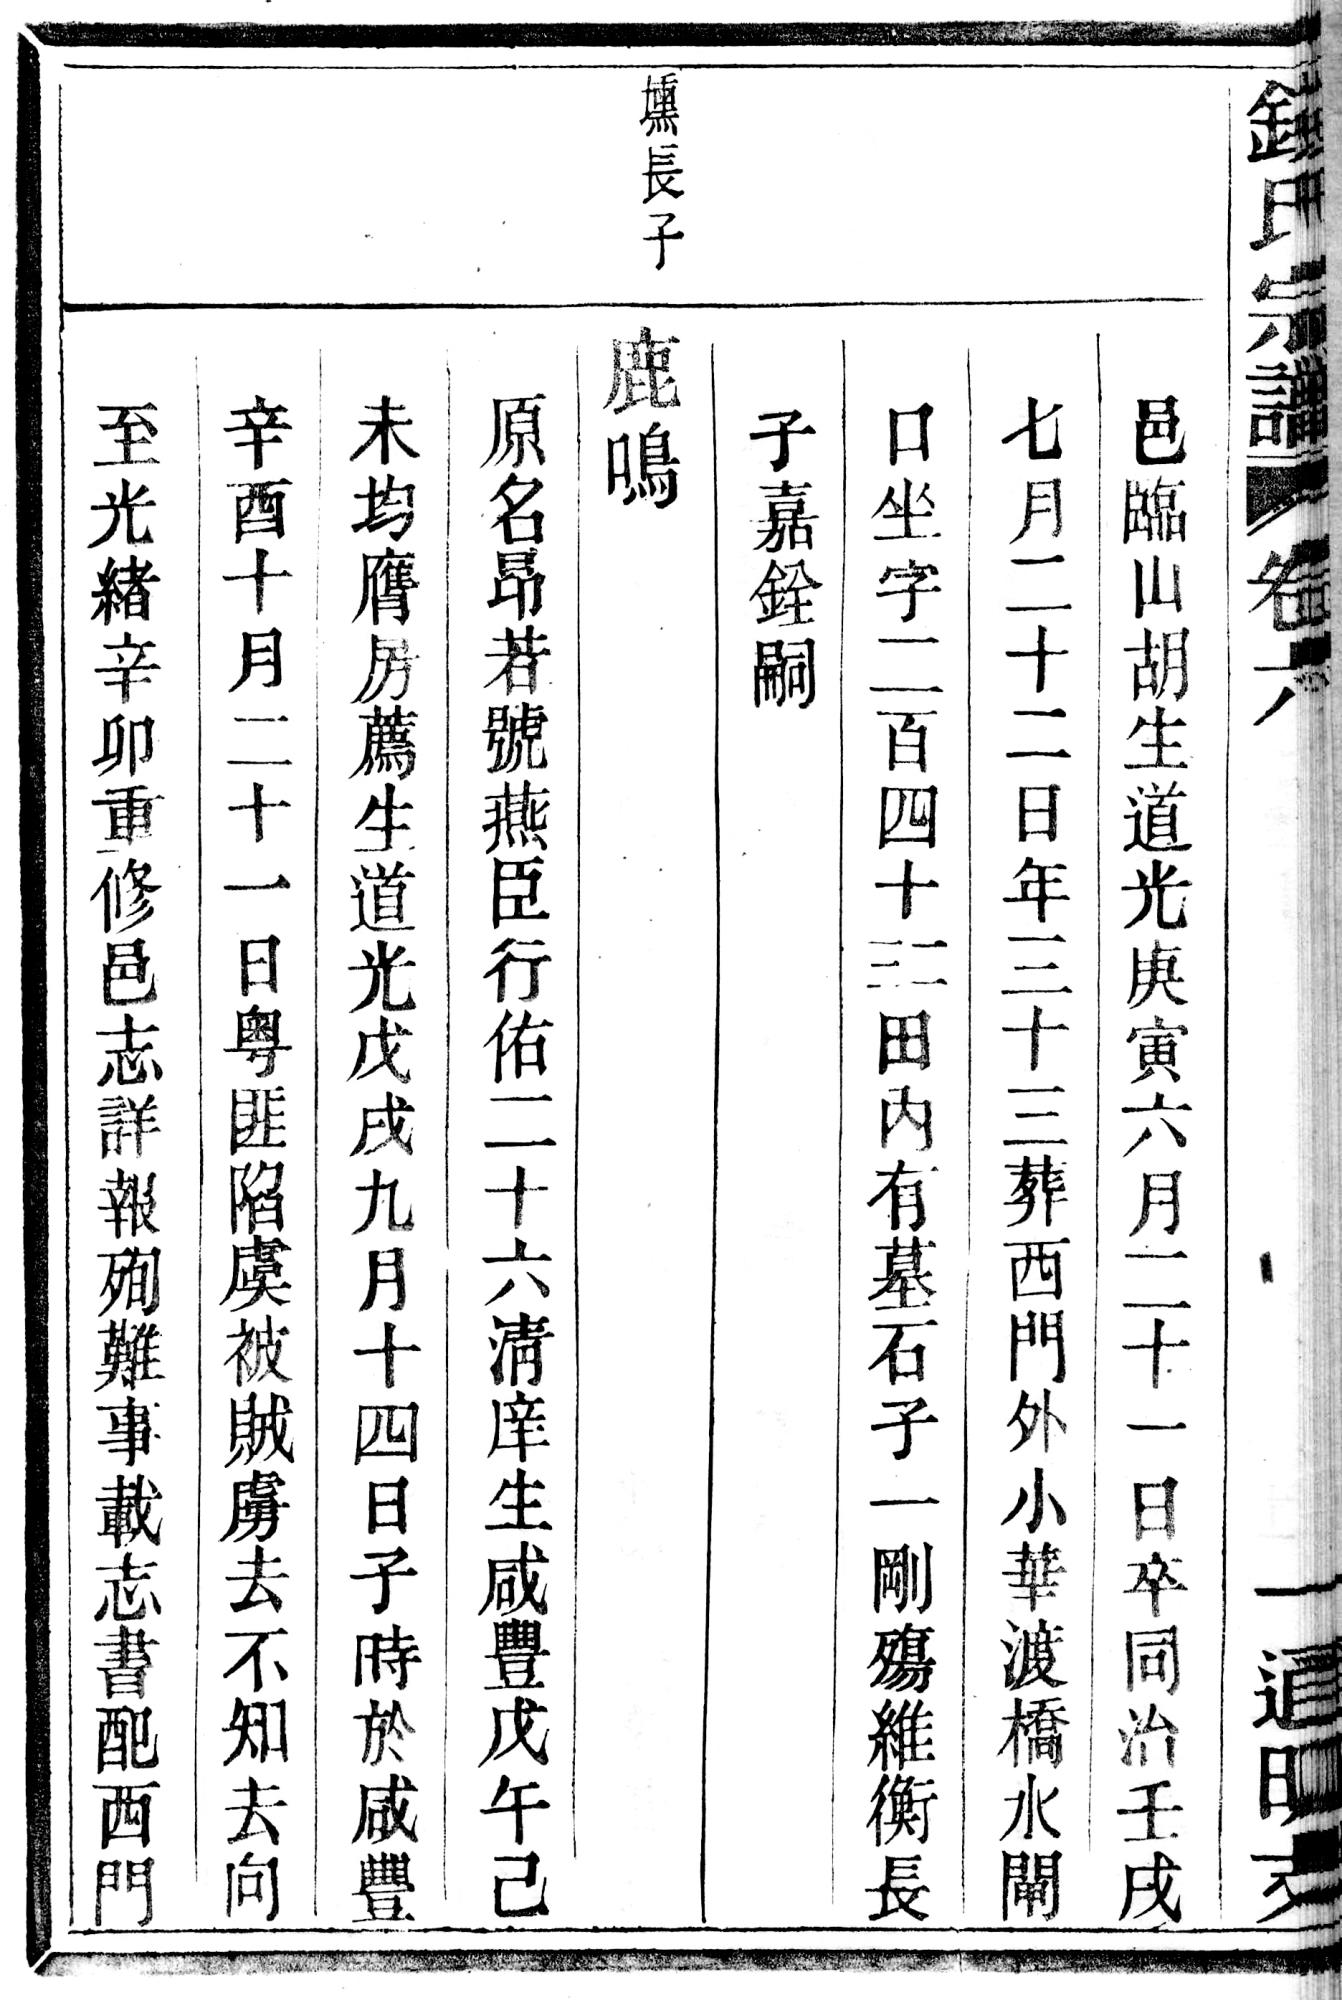 氏宗譜 卷六 道明
邑臨山胡生道光庚寅六月二十一日卒同治壬戌
七月二十二日年三十三葬西門外小華渡橋水閘
口坐字二百四十三二田內有墓石子一剛殤維衡長
子嘉銓嗣
燻長子
鹿鳴
原名昂若號燕臣行佑二十六淸庠生咸豐戊午己
未均膺房薦生道光戊戌九月十四日子時於咸豐
辛酉十月二十一日粵匪陷虞被賊虜去不知去向
至光緒辛卯重修邑志詳報殉難事載志書配西門